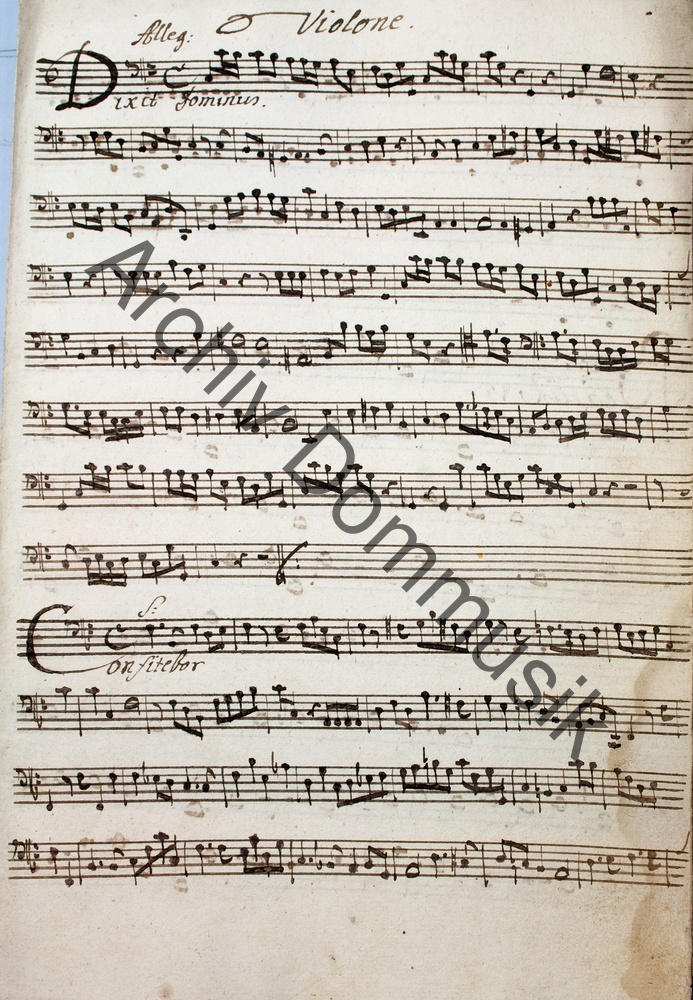 Violone.
Alleg:
Dixit Dominus.
S:
Confitebor
Archiv Dommusik